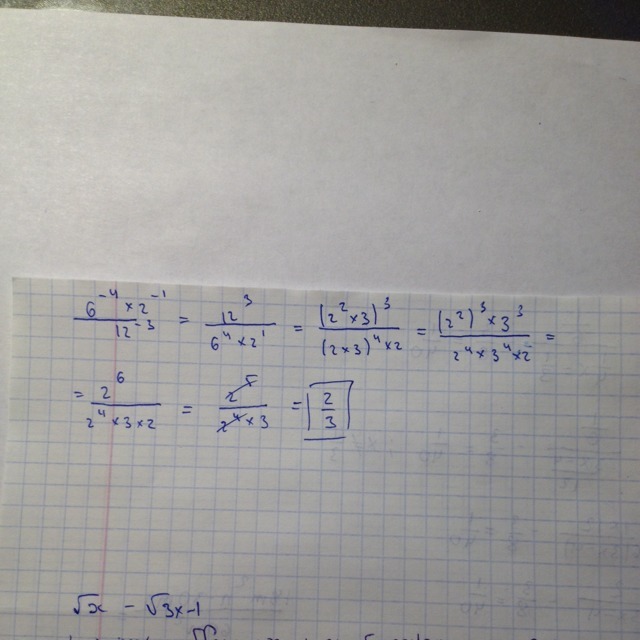 6⁻⁴ × 2⁻¹ / 12⁻³ = 12³ / 6⁴ × 2¹ = (2² × 3)³ / (2 × 3)⁴ × 2 = (2²)³ × 3³ / 2⁴ × 3⁴ × 2 =
= 2⁶ / 2⁴ × 3 × 2 = 2⁵ / 2⁴ × 3 = 2 / 3
√x - √3x-1